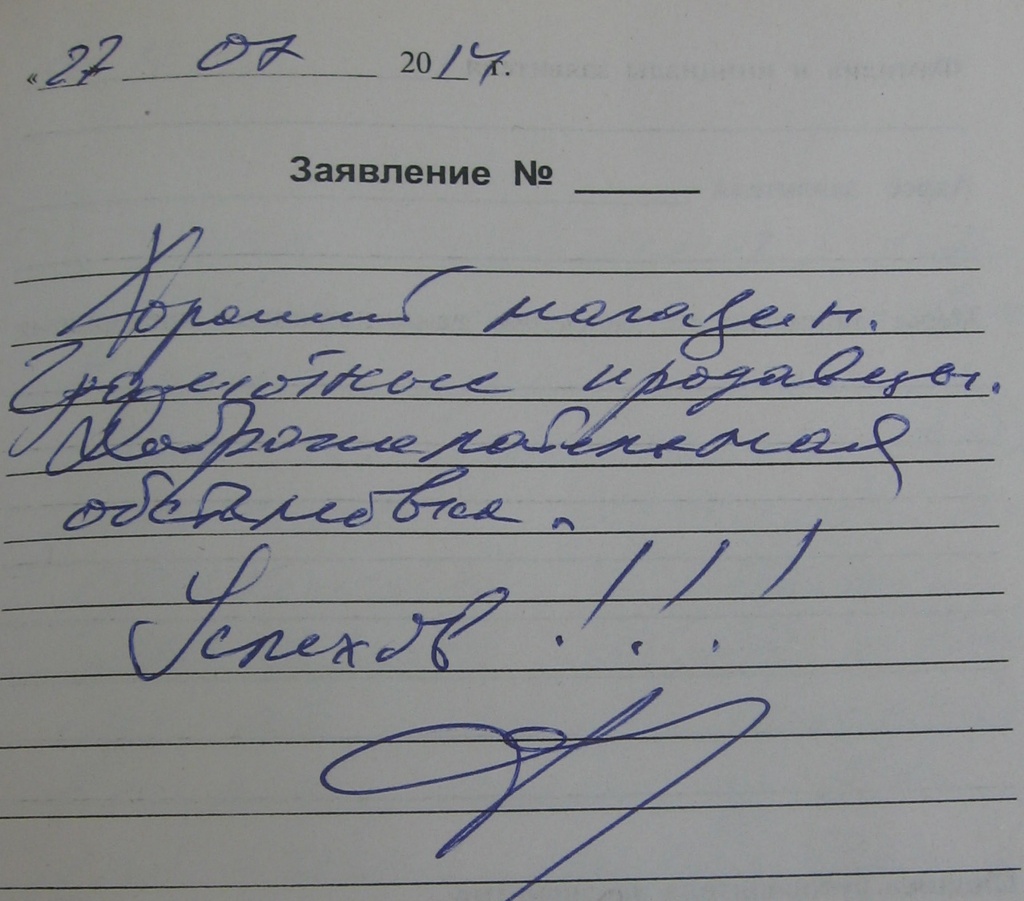 «27 07 2014 г.
Заявление № ______
Хороший магазин.
Грамотные продавцы.
Доброжелательная
обстановка.
Успехов!!!